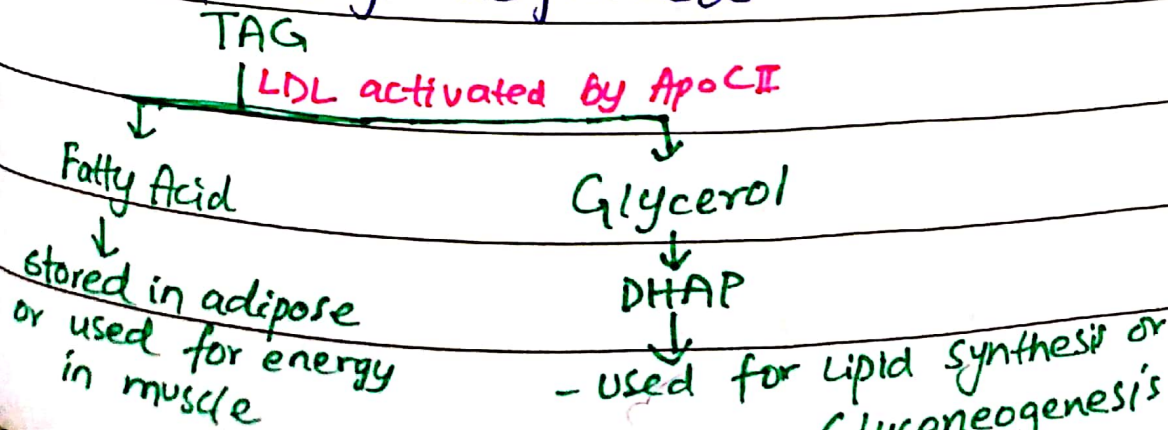 TAG
LDL activated by ApoCII
Fatty Acid
Glycerol
stored in adipose
or used for energy
in muscle
DHAP
- used for Lipid synthesis or
Gluconeogenesis